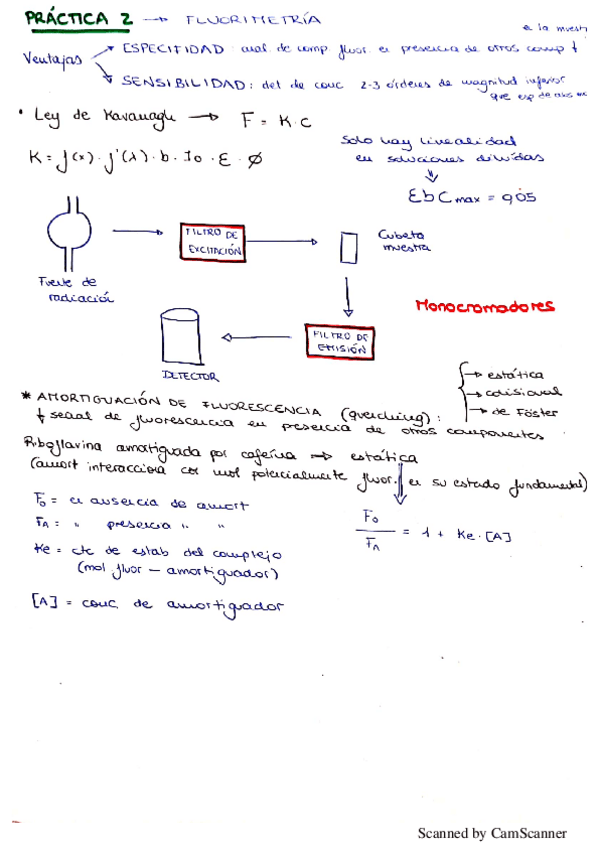 PRÁCTICA 2 → FLUORIMETRÍA
Ventajas
ESPECIFIDAD: anal de comp fluor. en presencia de otros comp
e la muest
SENSIBILIDAD: det de conc 2-3 órdenes de magnitud inferior
que esp de abs
• Ley de Kavanagh → F = K·C
K = f(x)·f'(λ)·b·I₀·Ɛ·Ø
Solo hay linealidad
en soluciones diluidas
ƐbCmax = 0,05
Fuente de
radiación
FILTRO DE
EXCITACIÓN
Cubeta
muestra
Monocromadores
FILTRO DE
EMISIÓN
DETECTOR
* AMORTIGUACIÓN DE FLUORESCENCIA (quenching):
→ estática
→ colisional
→ de Föster
↓ señal de fluorescencia en presencia de otros componentes
Riboflavina amortiguada por cafeína → estática
(amort interacciona con mol potencialmente fluor. en su estado fundamental)
F₀ = en ausencia de amort
F_A = " presencia " "
Ke = cte de estab del complejo
(mol fluor – amortiguador)
[A] = conc. de amortiguador
F₀/F_A = 1 + Ke·[A]
Scanned by CamScanner